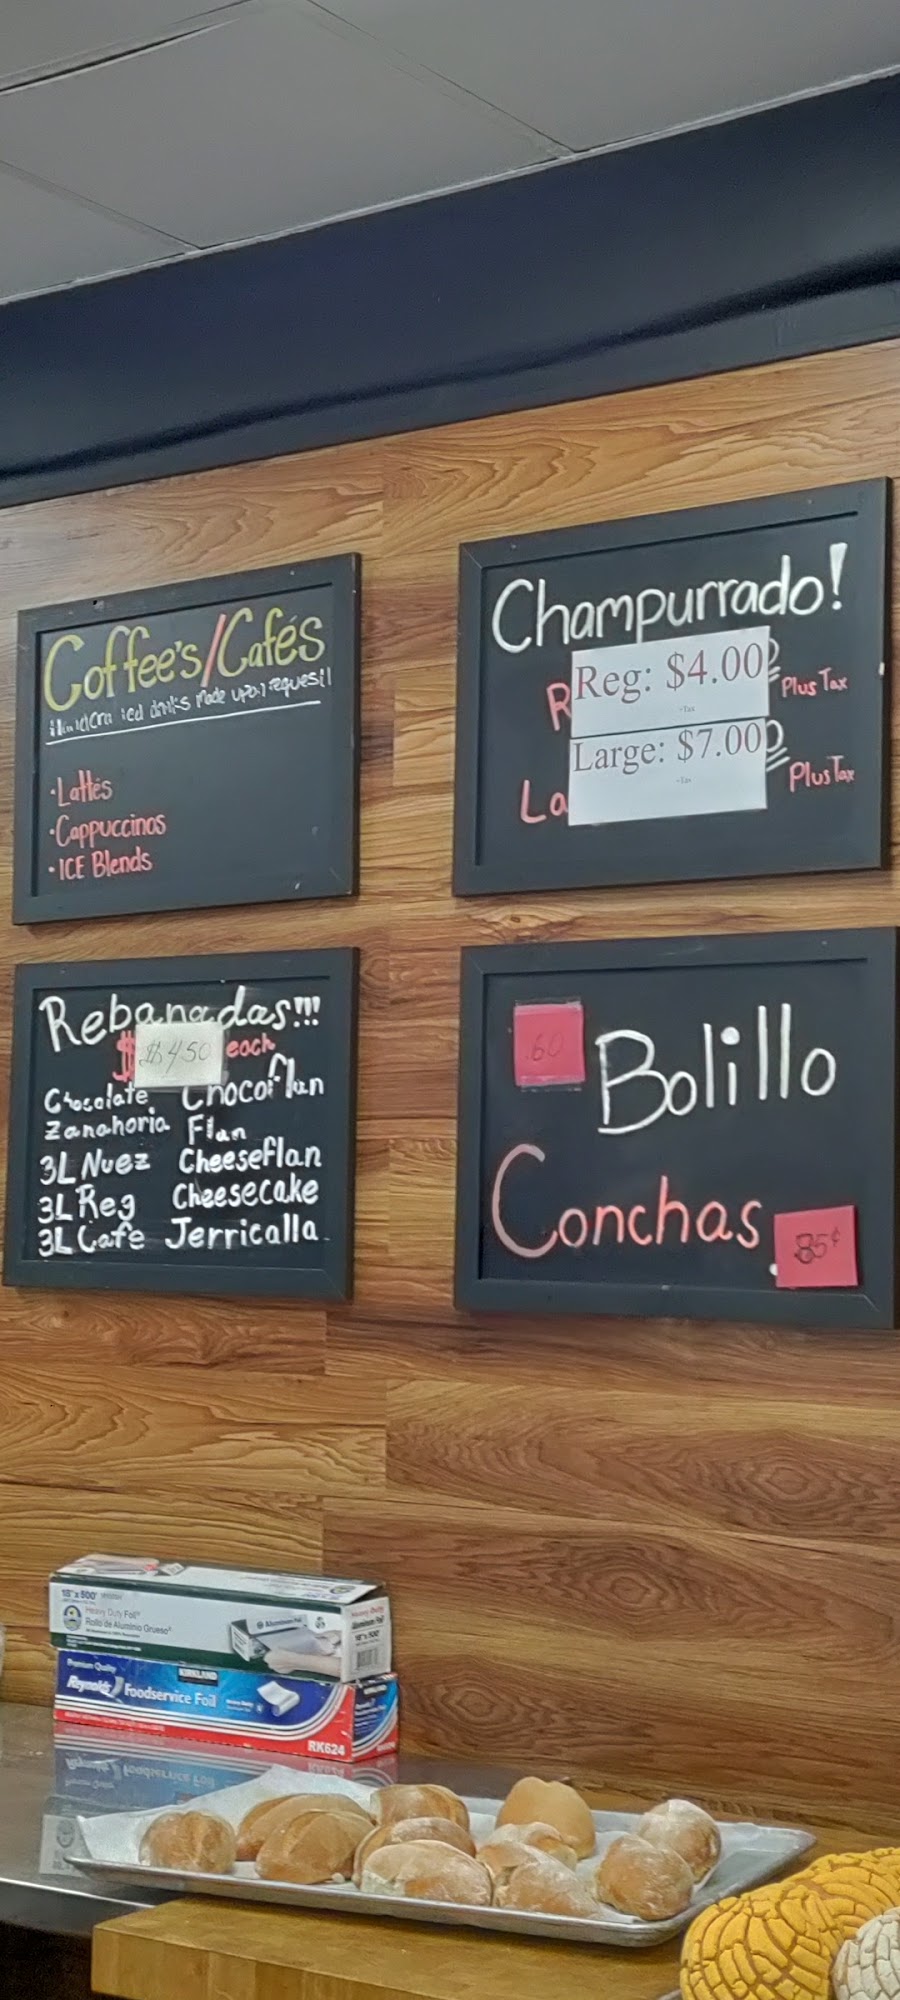 Coffee's/Cafés
drinks made upon request!!
·Lattes
·Cappuccinos
·ICE Blends
Champurrado!
Reg: $4.00
+Tax
Plus Tax
Large: $7.00
+Tax
Plus Tax
La
Rebanadas!!!
$4.50 each
Chocolate Chocoflan
Zanahoria Flan
3L Nuez Cheeseflan
3L Reg Cheesecake
3L Cafe Jerricalla
.60 Bolillo
Conchas 85¢
18" x 500'
Heavy Duty Foil
Rollo de Aluminio Grueso
Aluminum Foil
Heavy Duty
Aluminum Foil
18" x 500'
Premium Quality
KIRKLAND
Reynolds Foodservice Foil
Heavy Duty
RK624